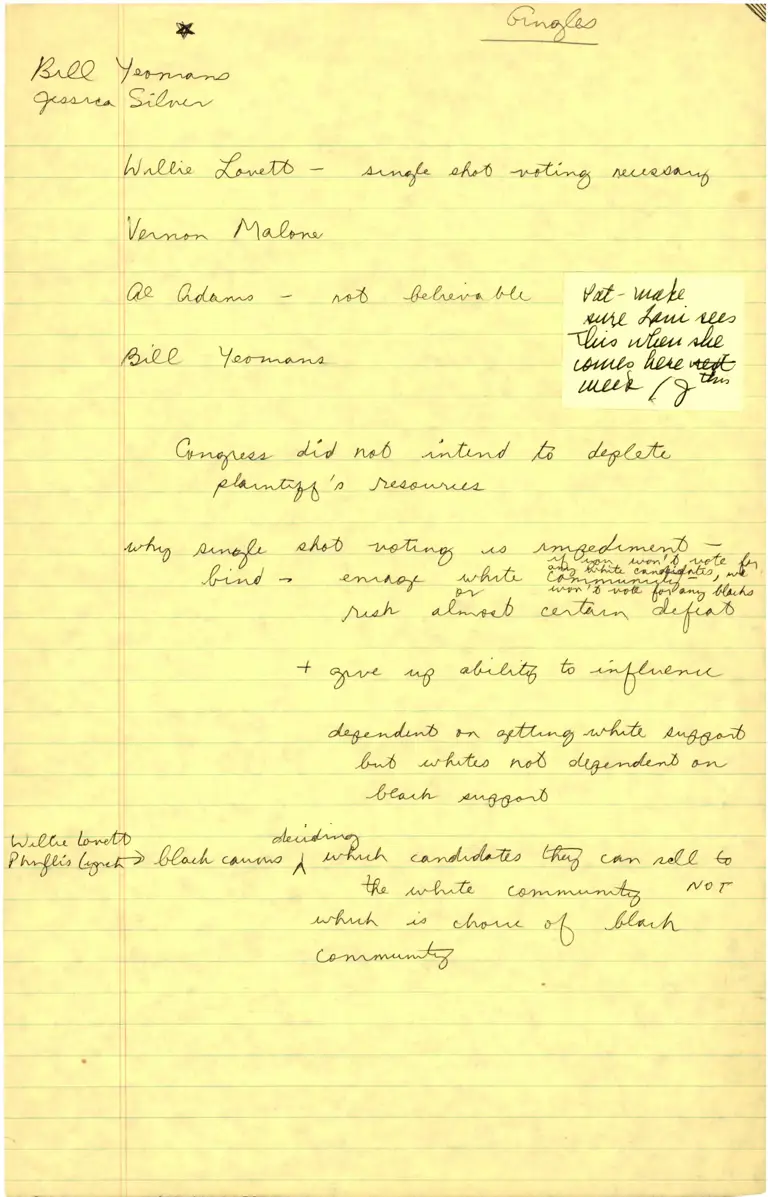 Gingles
Bill Yeomans
Jessica Silver
Willie Lovett – single shot voting necessary
Vernon Malone
Al Adams – not believable
Bill Yeomans
Pat – make
sure Lani sees
this when she
comes here next
this
week
Congress did not intend to deplete
plaintiff's resources
why single shot voting is impediment –
if you won't vote for
any white candidates, we
won't vote for any blacks
bind → enrage white community –
or
risk almost certain defeat
+ give up ability to influence
dependent on getting white support
but whites not dependent on
black support
Willie Lovett
Phyllis Lynch → black caucus deciding which candidates they can sell to
the white community NOT
which is choice of black
community